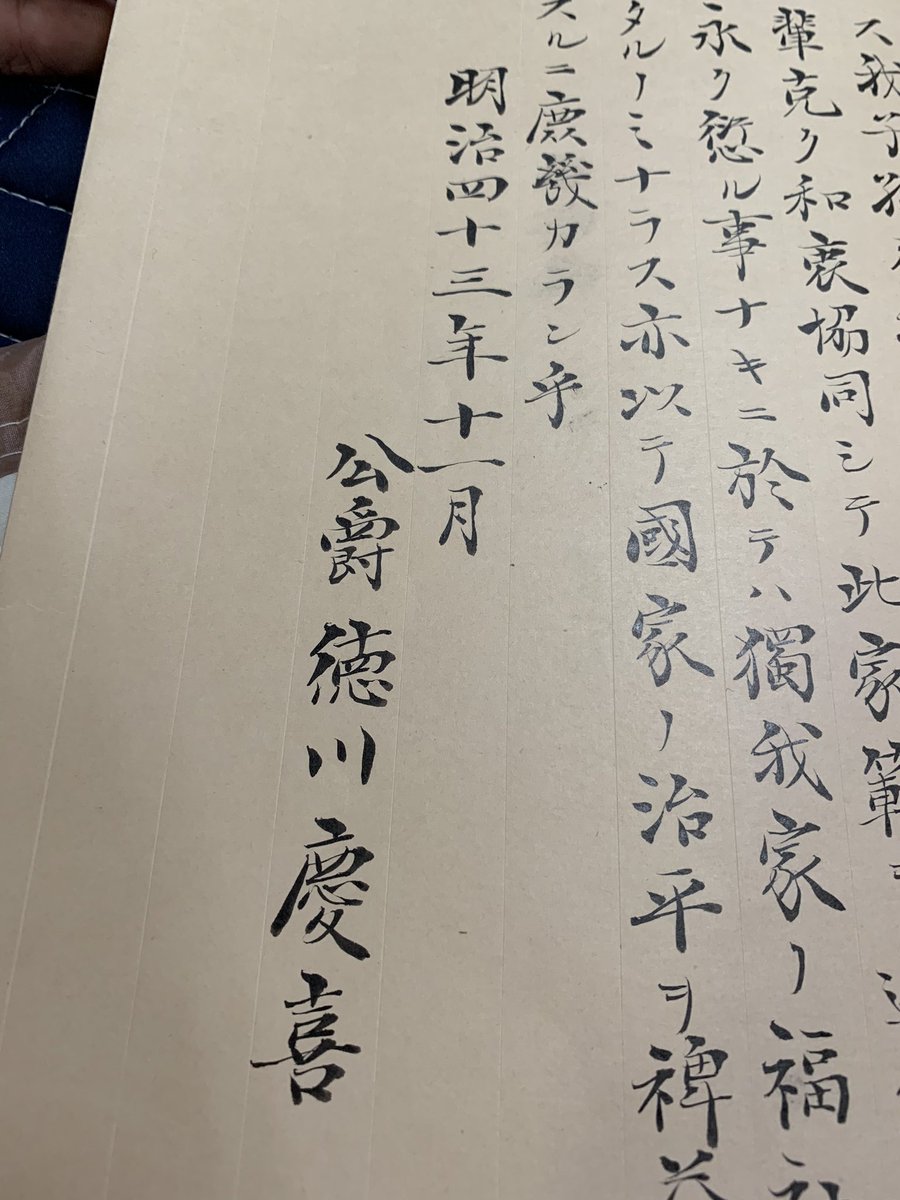 ス我子孫
輩克ク和衷協同シテ此家範ヲ
永ク愆ル事ナキニ於テハ獨我家ノ福
タルノミナラス亦以テ國家ノ治平ヲ裨益
スルニ庶幾カラン乎
明治四十三年十一月
公爵徳川慶喜